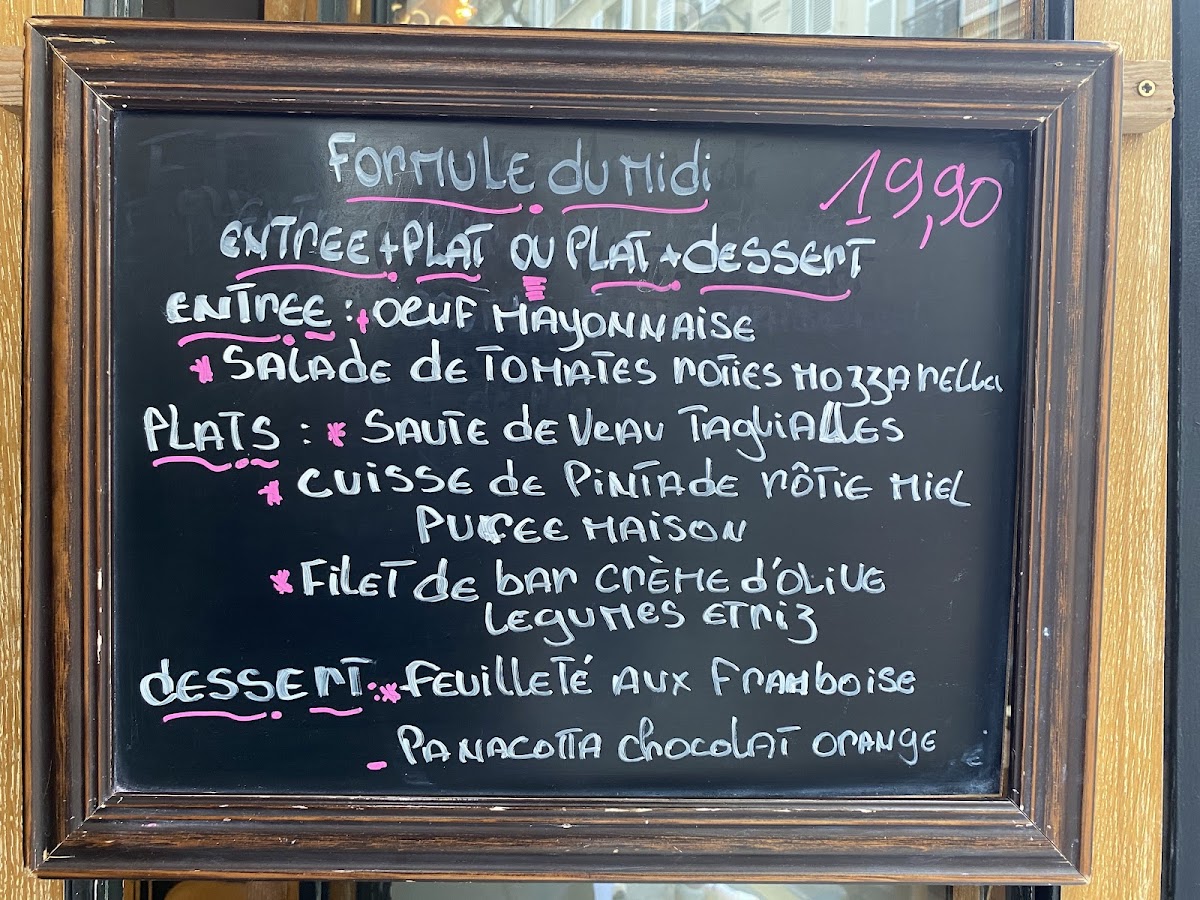 Formule du Midi
19,90
Entree + Plat ou Plat + dessert
Entree : + Oeuf Mayonnaise
* Salade de Tomates roties Mozzarella
Plats : * Saute de Veau Taglialles
* Cuisse de Pintade rôtie Miel
Puree Maison
* Filet de bar crème d'olive
Legumes et riz
dessert : * Feuilleté aux Framboise
- Panacotta chocolat orange